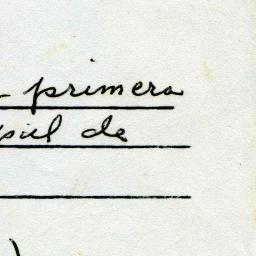 primera
piel de